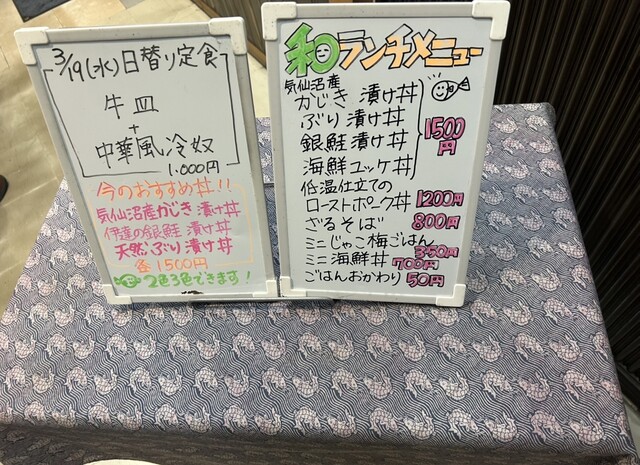 3/19(水)日替り定食
牛皿
+
中華風冷奴
1.000円
今のおすすめ丼!!
気仙沼産かじき漬け丼
伊達の銀鮭漬け丼
天然ぶり漬け丼
各1500円
2色3色できます!
和ランチメニュー
気仙沼産
かじき漬け丼
ぶり漬け丼
銀鮭漬け丼
海鮮ユッケ丼
1500円
低温仕立ての
ローストポーク丼 1200円
ざるそば 800円
ミニじゃこ梅ごはん 350円
ミニ海鮮丼 700円
ごはんおかわり 50円